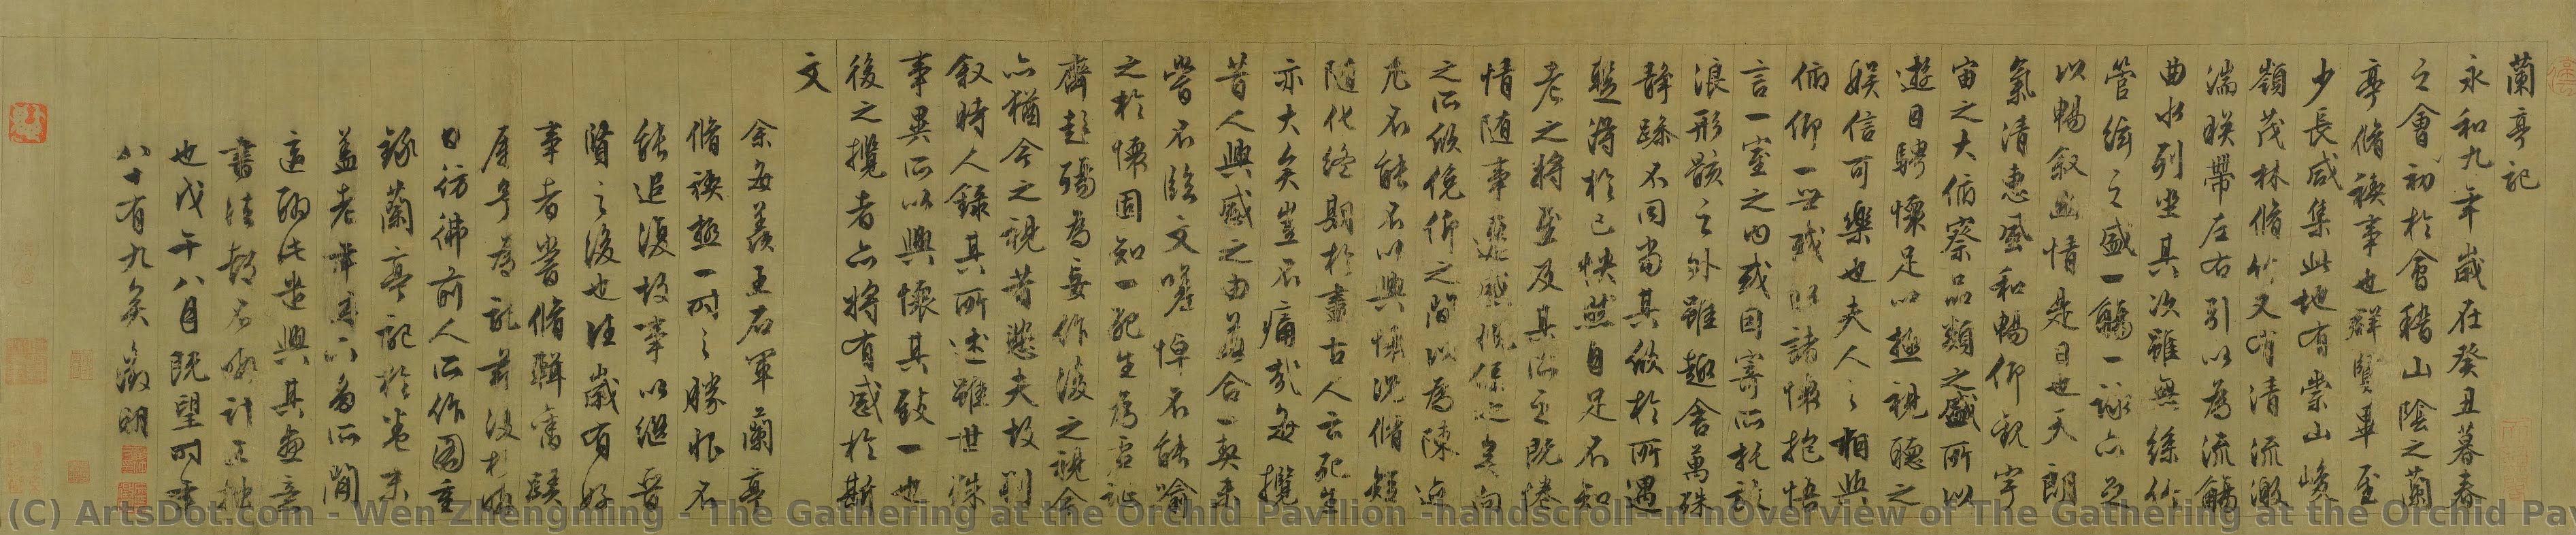 蘭亭記
永和九年歲在癸丑暮春
之會初於會稽山陰之蘭
亭脩禊事也群賢畢至
少長咸集此地有崇山峻
嶺茂林脩竹又有清流激
湍映帶左右引以為流觴
曲水列坐其次雖無絲竹
管絃之盛一觴一詠亦足
以暢敘幽情是日也天朗
氣清惠風和暢仰觀宇
宙之大俯察品類之盛所以
遊目騁懷足以極視聽之
娛信可樂也夫人之相與
俯仰一世或取諸懷抱悟
言一室之內或因寄所託放
浪形骸之外雖趣舍萬殊
靜躁不同當其欣於所遇
蹔得於己怏然自足不知
老之將至及其所之既倦
情隨事遷感慨係之矣向
之所欣俛仰之間以為陳迹
尤不能不以興懷況脩短
隨化終期於盡古人云死生
亦大矣豈不痛哉每攬
昔人興感之由若合一契未
嘗不臨文嗟悼不能喻
之於懷固知一死生為虛誕
齊彭殤為妄作後之視今
亦猶今之視昔悲夫故列
敘時人錄其所述雖世殊
事異所以興懷其致一也
後之攬者亦將有感於斯
文
余每羨王右軍蘭亭
脩禊極一時之勝恨不
能追復故事以繼晉
賢之後也往歲有好
事者嘗脩輯舊蹟
屬予為記前後
日彷彿前人所作圖重
錄蘭亭記於卷末
蓋老年多所閒
適聊此遣興其畫意
書法都不暇計工拙
也戊午八月既望時年
八十有九矣徵明
(C) ArtsDot.com - Wen Zhengming - The Gathering at the Orchid Pavilion -handscroll- n nOverview of The Gathering at the Orchid Pav